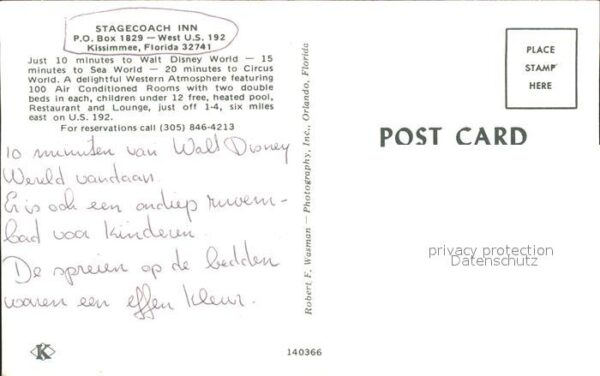 STAGECOACH INN
P.O. Box 1829 — West U.S. 192
Kissimmee, Florida 32741
Just 10 minutes to Walt Disney World — 15
minutes to Sea World — 20 minutes to Circus
World. A delightful Western Atmosphere featuring
100 Air Conditioned Rooms with two double
beds in each, children under 12 free, heated pool,
Restaurant and Lounge, just off 1-4, six miles
east on U.S. 192.
For reservations call (305) 846-4213
10 minuten van Walt Disney
Wereld vandaan.
Er is ook een ondiep zwem-
bad voor kinderen.
De spreien op de bedden
waren een effen kleur.
K
140366
Robert F. Wasman — Photography, Inc., Orlando, Florida
PLACE
STAMP
HERE
POST CARD
privacy protection
Datenschutz